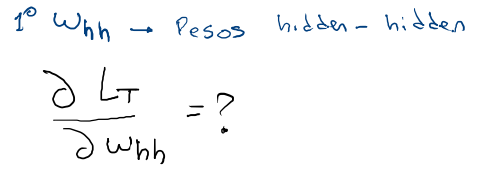 1º Whh → Pesos hidden - hidden
∂ LT / ∂ Whh = ?